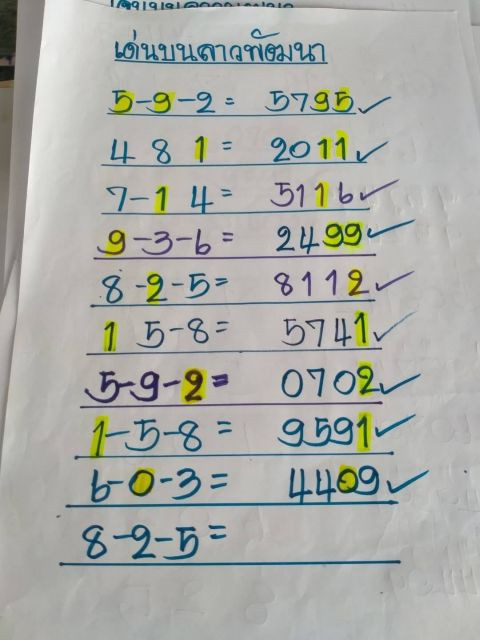 เด่นบนลาวพัฒนา
5-9-2= 5795✓
4 8 1= 2011✓
7-1 4= 5116✓
9-3-6= 2499✓
8-2-5= 8112✓
1 5-8= 5741✓
5-9-2= 0702✓
1-5-8= 9591✓
6-0-3= 4409✓
8-2-5=